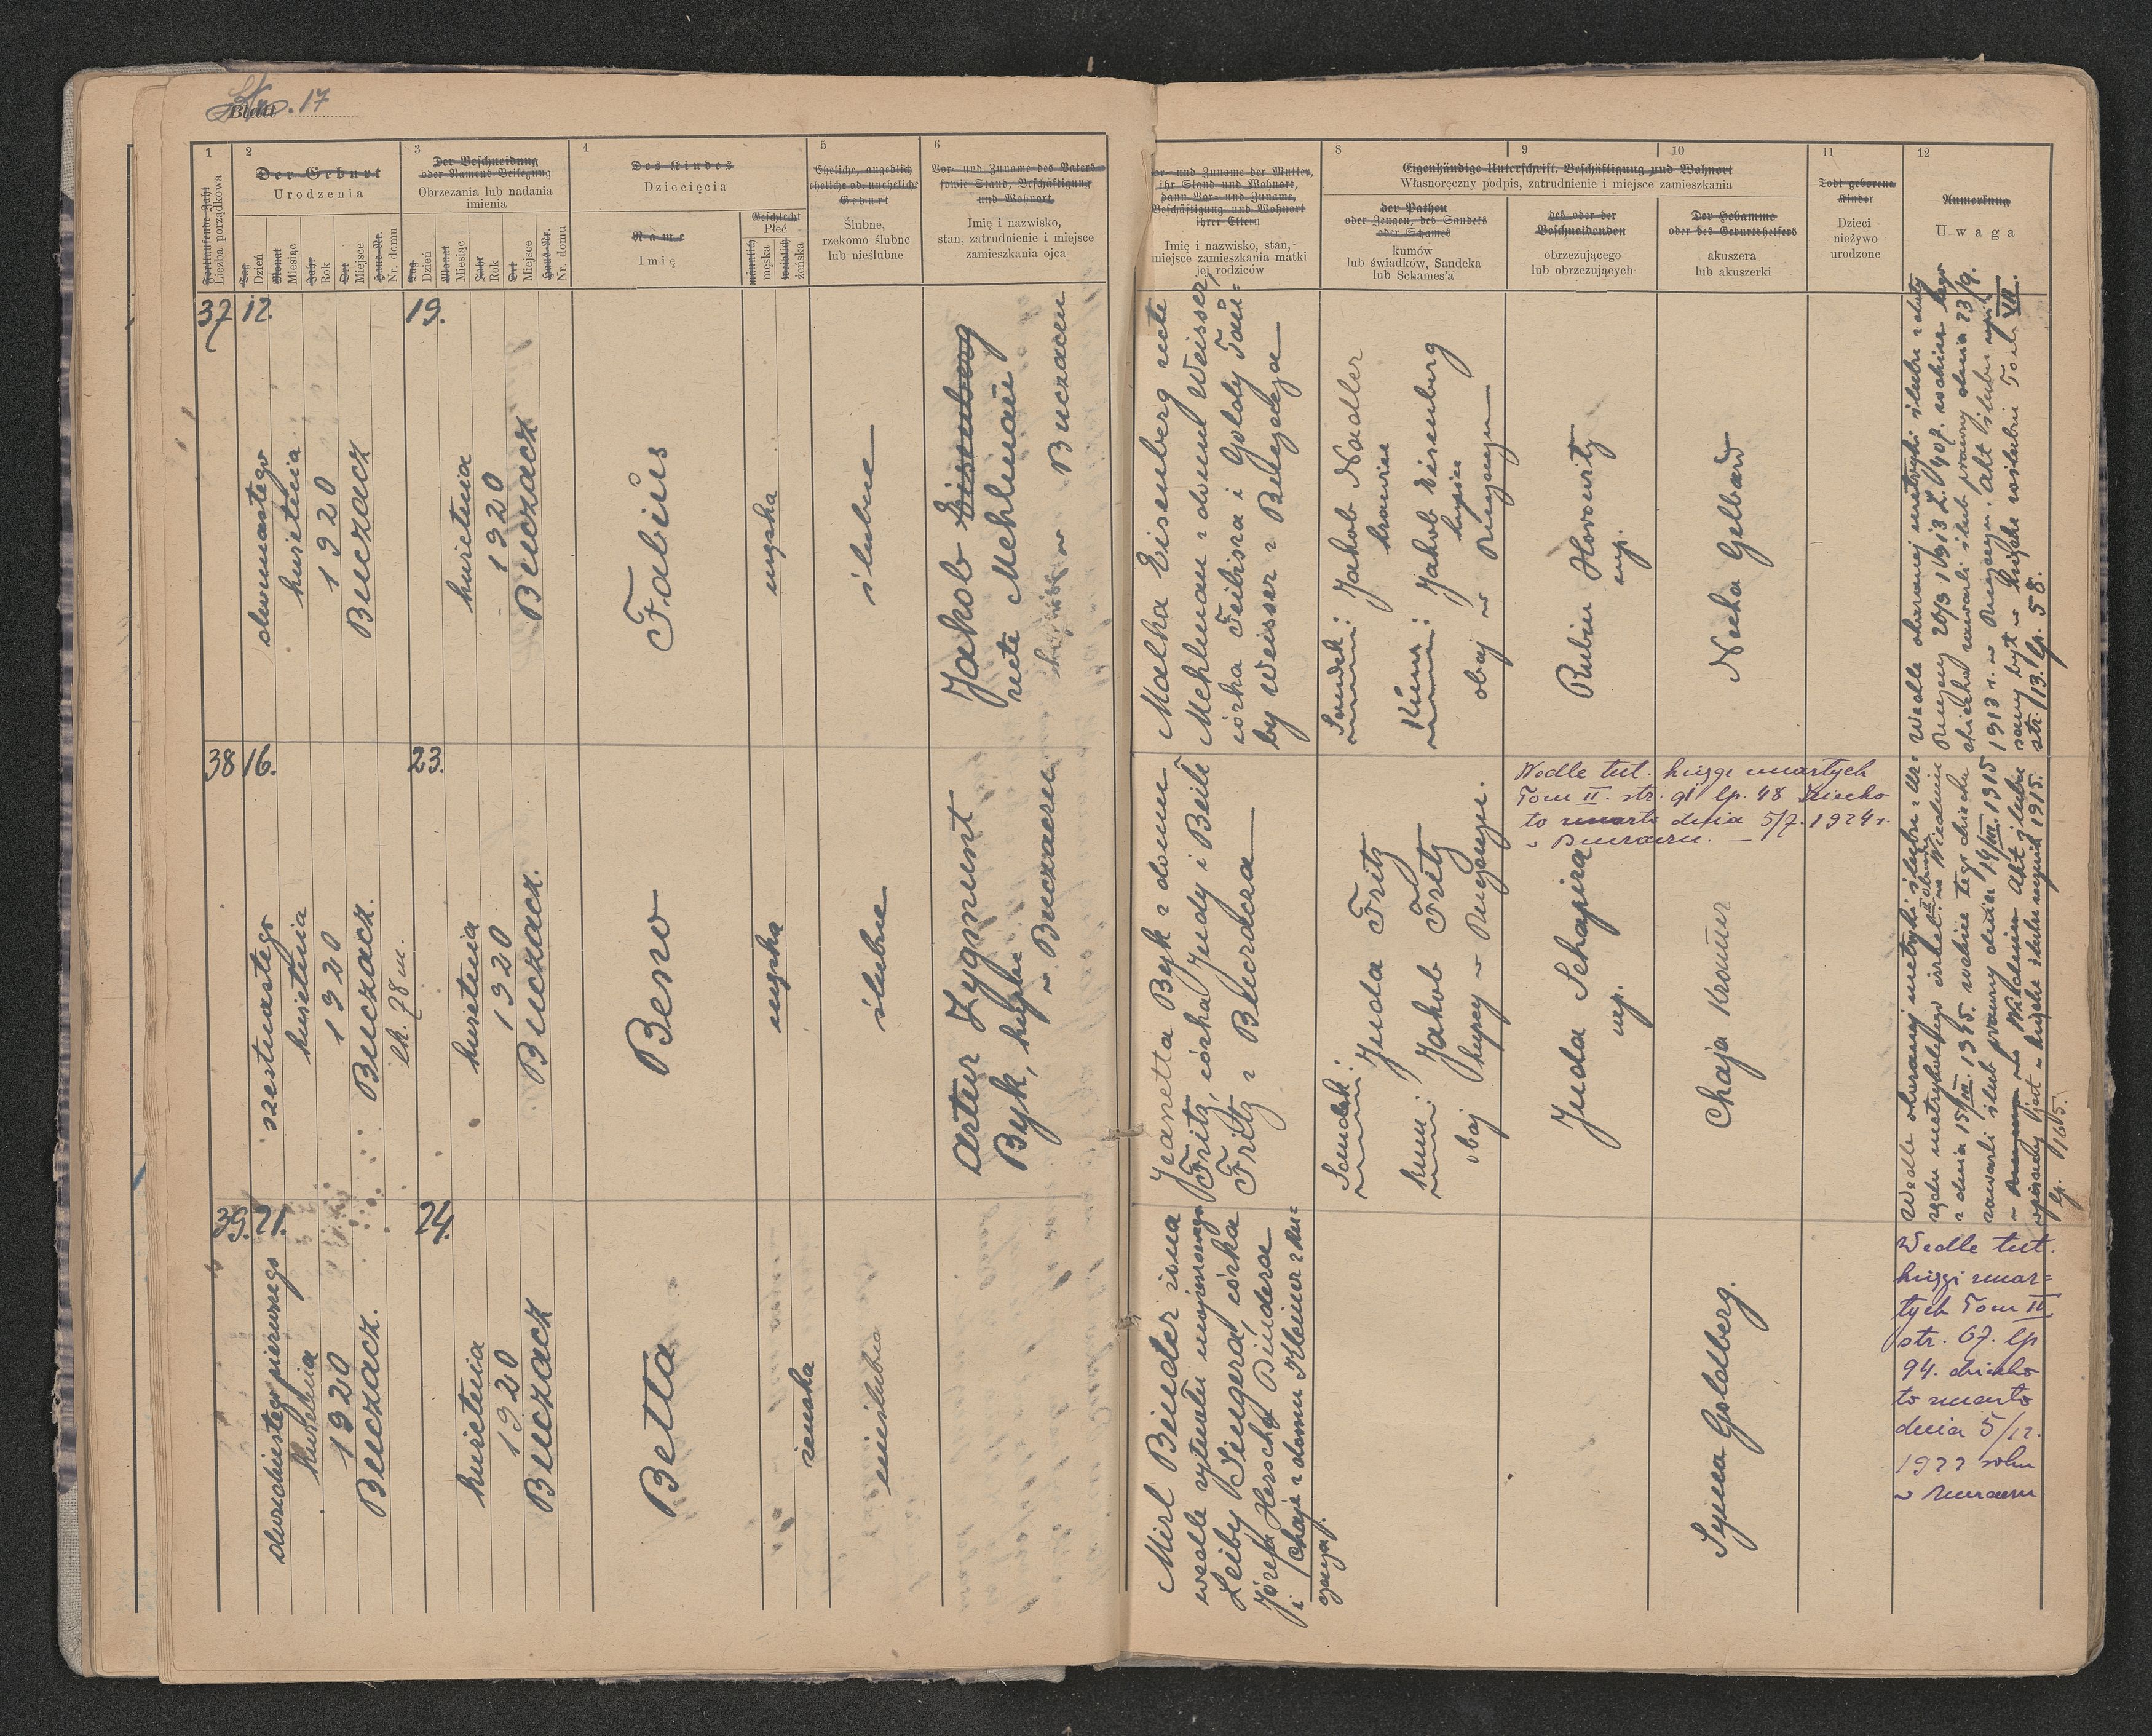 Blatt
Str. 17
1
Fortlaufende Zahl
Liczba porządkowa
2
Der Geburt
Urodzenia
Tag
Dzień
Monat
Miesiąc
Jahr
Rok
Ort
Miejsce
Haus-Nr.
Nr. domu
3
Der Beschneidung
oder Namens-Beilegung
Obrzezania lub nadania
imienia
Tag
Dzień
Monat
Miesiąc
Jahr
Rok
Ort
Miejsce
Haus-Nr.
Nr. domu
4
Des Kindes
Dziecięcia
Name
Imię
Geschlecht
Płeć
männlich
męska
weiblich
żeńska
5
Eheliche, angeblich
eheliche od. uneheliche
Geburt
Ślubne,
rzekomo ślubne
lub nieślubne
6
Vor- und Zuname des Vaters
sowie Stand, Beschäftigung
und Wohnort
Imię i nazwisko,
stan, zatrudnienie i miejsce
zamieszkania ojca
Vor- und Zuname der Mutter,
ihr Stand und Wohnort,
dann Vor- und Zuname,
Beschäftigung und Wohnort
ihrer Eltern
Imię i nazwisko, stan,
miejsce zamieszkania matki
jej rodziców
8
9
10
Eigenhändige Unterschrift, Beschäftigung und Wohnort
Własnoręczny podpis, zatrudnienie i miejsce zamieszkania
der Pathen
oder Zeugen, des Sandeks
oder Schames
kumów
lub świadków, Sandeka
lub Schames'a
des oder der
Beschneidenden
obrzezującego
lub obrzezujących
Der Hebamme
oder des Geburtshelfers
akuszera
lub akuszerki
11
Todt geborene
Kinder
Dzieci
nieżywo
urodzone
12
Anmerkung
Uwaga
37
12.
dwunastego
kwietnia
1920
Buczacz
19.
kwietnia
1920
Buczacz
Fabius
męska
ślubne
Jakob Eisenberg
recte Mehlman
w Buczaczu
Malka Eisenberg recte
Mehlman z domu Weisser,
córka Feibisza i Goldy Tau=
by Weisser z Buczacza
Sandek: Jakob Nadler
krawiec
Kumi: Jakob Eisenberg
kupiec
obaj w Buczaczu
Rubin Horowitz
mp.
Necha Gelband
Wedle okazanej metryki ślubu z daty
Buczacz 20/3 1913 L. 407. rodzice tego
dziecka zawarli ślub prawny dnia 23/9.
1913 r. w Buczaczu. Akt ślubu wpi=
sany jest w księdze ślubu Tom VII.
str. 13. lp. 58.
38
16.
szesnastego
kwietnia
1920
Buczacz.
lk. 78 m.
23.
kwietnia
1920
Buczacz.
Beno
męska
ślubne
Artur Zygmunt
Byk, kupiec
w Buczaczu
Jeanetta Byk z domu
Fritz, córka Judy i Beile
Fritz z Buczacza
Sandek: Juda Fritz
kum: Jakob Fritz
obaj kupcy w Buczaczu.
Juda Schapira
mp.
Chaja Kramer
Wedle tut. księgi zmarłych
Tom II. str. 91 lp. 48 dziecko
to zmarło dnia 5/7. 1924 r.
w Buczaczu. —
Wedle okazanej metryki ślubu z Ur=
zędu metrykalnego izrael. w Wiedniu
z dnia 15/III. 1915. rodzice tego dziecka
zawarli ślub prawny dnia 14/III. 1915
w Wiedniu Akt ślubu
wpisany jest w księdze ślubu rocznik 1915.
lp. 165.
39.
21.
dwudziestego pierwszego
kwietnia
1920
Buczacz.
24.
kwietnia
1920
Buczacz
Betta
żeńska
nieślubne
Mirl Binder żona
wedle rytuału mojżeszowego
Leiby Singera, córka
Józefa Herscha Bindera
i Chaje z domu Kleiner z Bu=
czacza.
Syma Goldberg.
Wedle tut.
księgi zmar=
łych Tom II
str. 67. lp
94. dziecko
to zmarło
dnia 5/12.
1922 roku
w Buczaczu